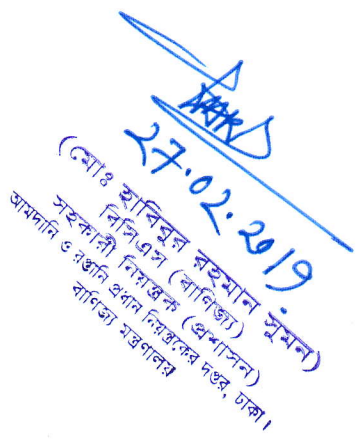 27.02.2019.
(মোঃ হাবিবুর রহমান সুমন)
বিসিএস (বাণিজ্য)
সহকারী নিয়ন্ত্রক (প্রশাসন)
আমদানি ও রপ্তানি প্রধান নিয়ন্ত্রকের দপ্তর, ঢাকা।
বাণিজ্য মন্ত্রণালয়